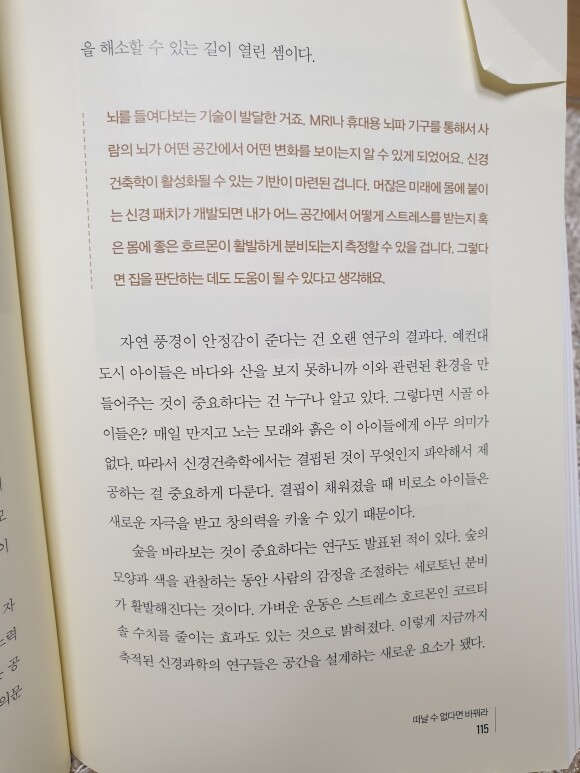 을 해소할 수 있는 길이 열린 셈이다.
뇌를 들여다보는 기술이 발달한 거죠. MRI나 휴대용 뇌파 기구를 통해서 사
람의 뇌가 어떤 공간에서 어떤 변화를 보이는지 알 수 있게 되었어요. 신경
건축학이 활성화될 수 있는 기반이 마련된 겁니다. 머잖은 미래에 몸에 붙이
는 신경 패치가 개발되면 내가 어느 공간에서 어떻게 스트레스를 받는지 혹
은 몸에 좋은 호르몬이 활발하게 분비되는지 측정할 수 있을 겁니다. 그렇다
면 집을 판단하는 데도 도움이 될 수 있다고 생각해요.
자연 풍경이 안정감이 준다는 건 오랜 연구의 결과다. 예컨대
도시 아이들은 바다와 산을 보지 못하니까 이와 관련된 환경을 만
들어주는 것이 중요하다는 건 누구나 알고 있다. 그렇다면 시골 아
이들은? 매일 만지고 노는 모래와 흙은 이 아이들에게 아무 의미가
없다. 따라서 신경건축학에서는 결핍된 것이 무엇인지 파악해서 제
공하는 걸 중요하게 다룬다. 결핍이 채워졌을 때 비로소 아이들은
새로운 자극을 받고 창의력을 키울 수 있기 때문이다.
숲을 바라보는 것이 중요하다는 연구도 발표된 적이 있다. 숲의
모양과 색을 관찰하는 동안 사람의 감정을 조절하는 세로토닌 분비
가 활발해진다는 것이다. 가벼운 운동은 스트레스 호르몬인 코르티
솔 수치를 줄이는 효과도 있는 것으로 밝혀졌다. 이렇게 지금까지
축적된 신경과학의 연구들은 공간을 설계하는 새로운 요소가 됐다.
떠날 수 없다면 바꿔라
115
고
이
자
노력
공
의문